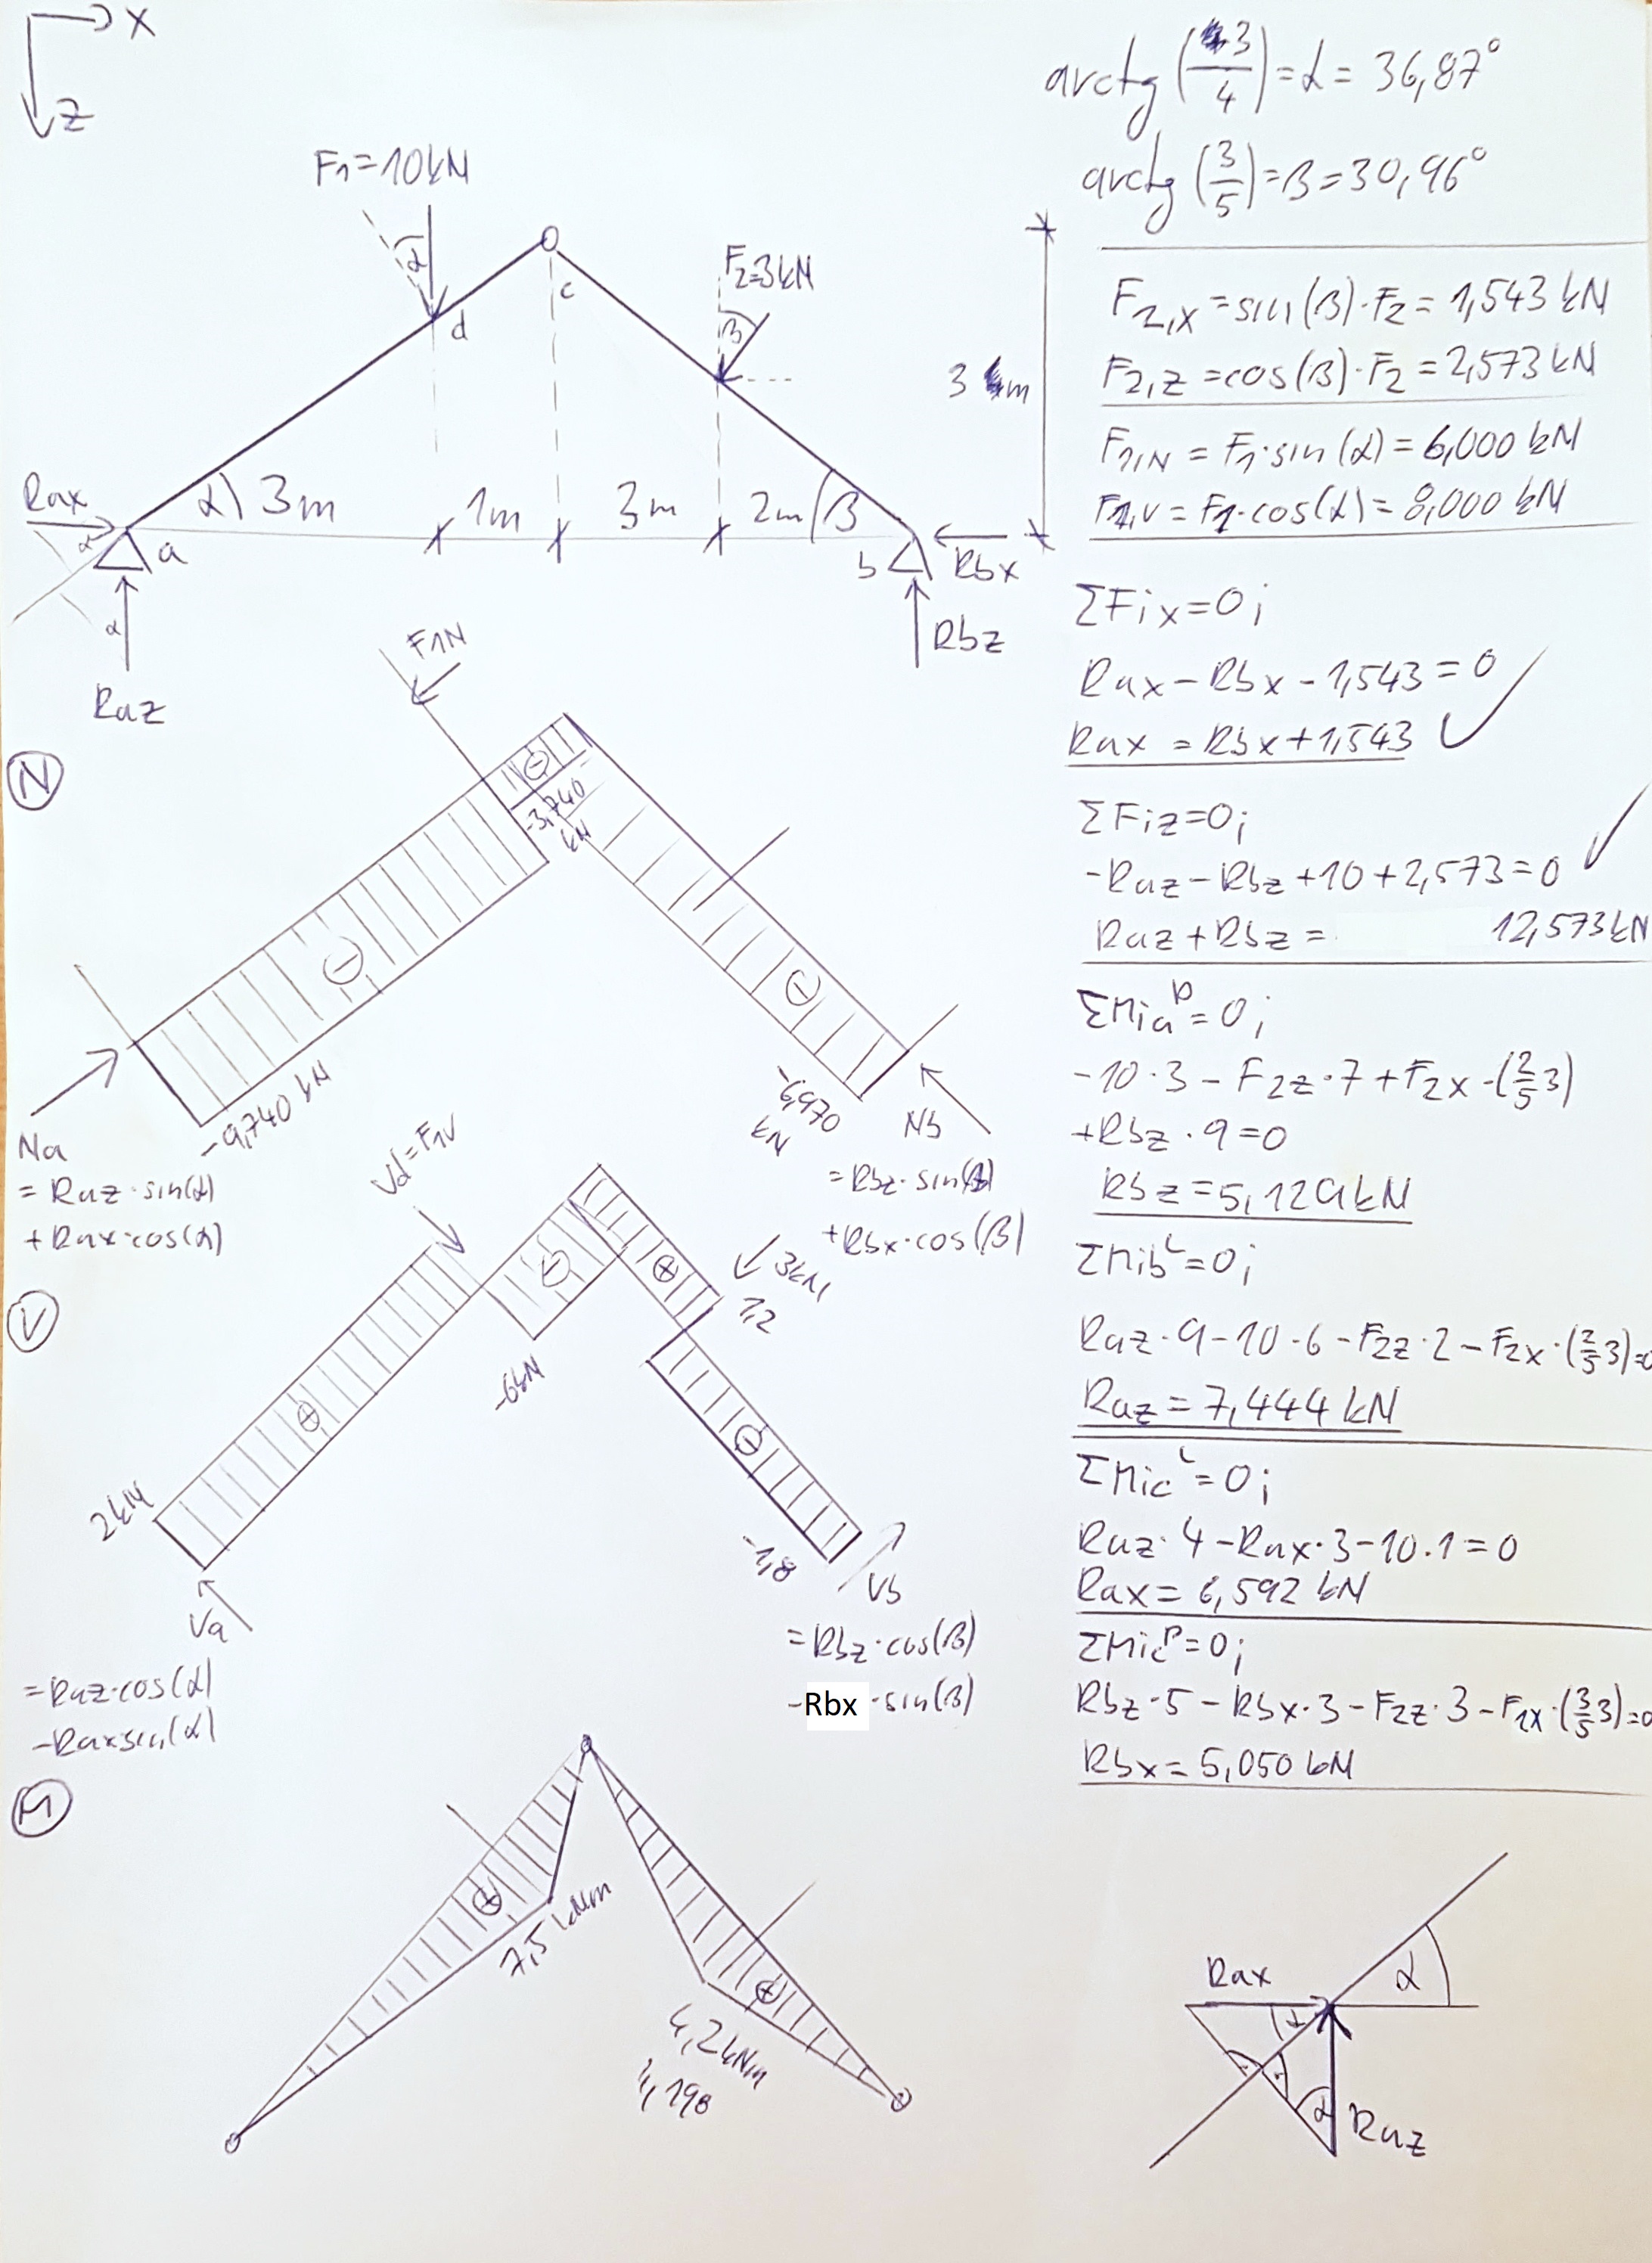 x
z
F1=10kN
α
d
c
F2=3kN
β
3 m
Rax
α
3m
1m
3m
2m
β
α
a
b
Rbx
α
Raz
Rbz
arctg (3/4) = α = 36,87°
arctg (3/5) = β = 30,96°
F2,x = sin(β)·F2 = 1,543 kN
F2,z = cos(β)·F2 = 2,573 kN
F1,N = F1·sin(α) = 6,000 kN
F1,V = F1·cos(α) = 8,000 kN
ΣFix=0;
Rax - Rbx - 1,543 = 0 ✓
Rax = Rbx + 1,543
ΣFiz=0;
-Raz - Rbz + 10 + 2,573 = 0 ✓
Raz + Rbz = 12,573 kN
ΣMia^P = 0;
-10·3 - F2z·7 + F2x·(2/5 3)
+Rbz·9=0
Rbz = 5,129 kN
ΣMib^L = 0;
Raz·9 - 10·6 - F2z·2 - F2x·(2/5 3)=0
Raz = 7,444 kN
ΣMic^L = 0;
Raz·4 - Rax·3 - 10.1 = 0
Rax = 6,592 kN
ΣMic^P = 0;
Rbz·5 - Rbx·3 - F2z·3 - F2x·(3/5 3)=0
Rbx = 5,050 kN
N
F1N
-
-3,740
kN
-
-
-9,740 kN
-6,970
kN
Na
= Raz·sin(α)
+ Rax·cos(α)
Nb
= Rbz·sin(β)
+Rbx·cos(β)
V
Vd=F1V
+
-
+
3kN
1,2
-6kN
2kN
-
-1,8
Va
= Raz·cos(α)
- Rax sin(α)
Vb
= Rbz·cos(β)
- Rbx ·sin(β)
M
+
7,5 kNm
+
4,2kNm
4,198
Rax
α
α
α
Raz